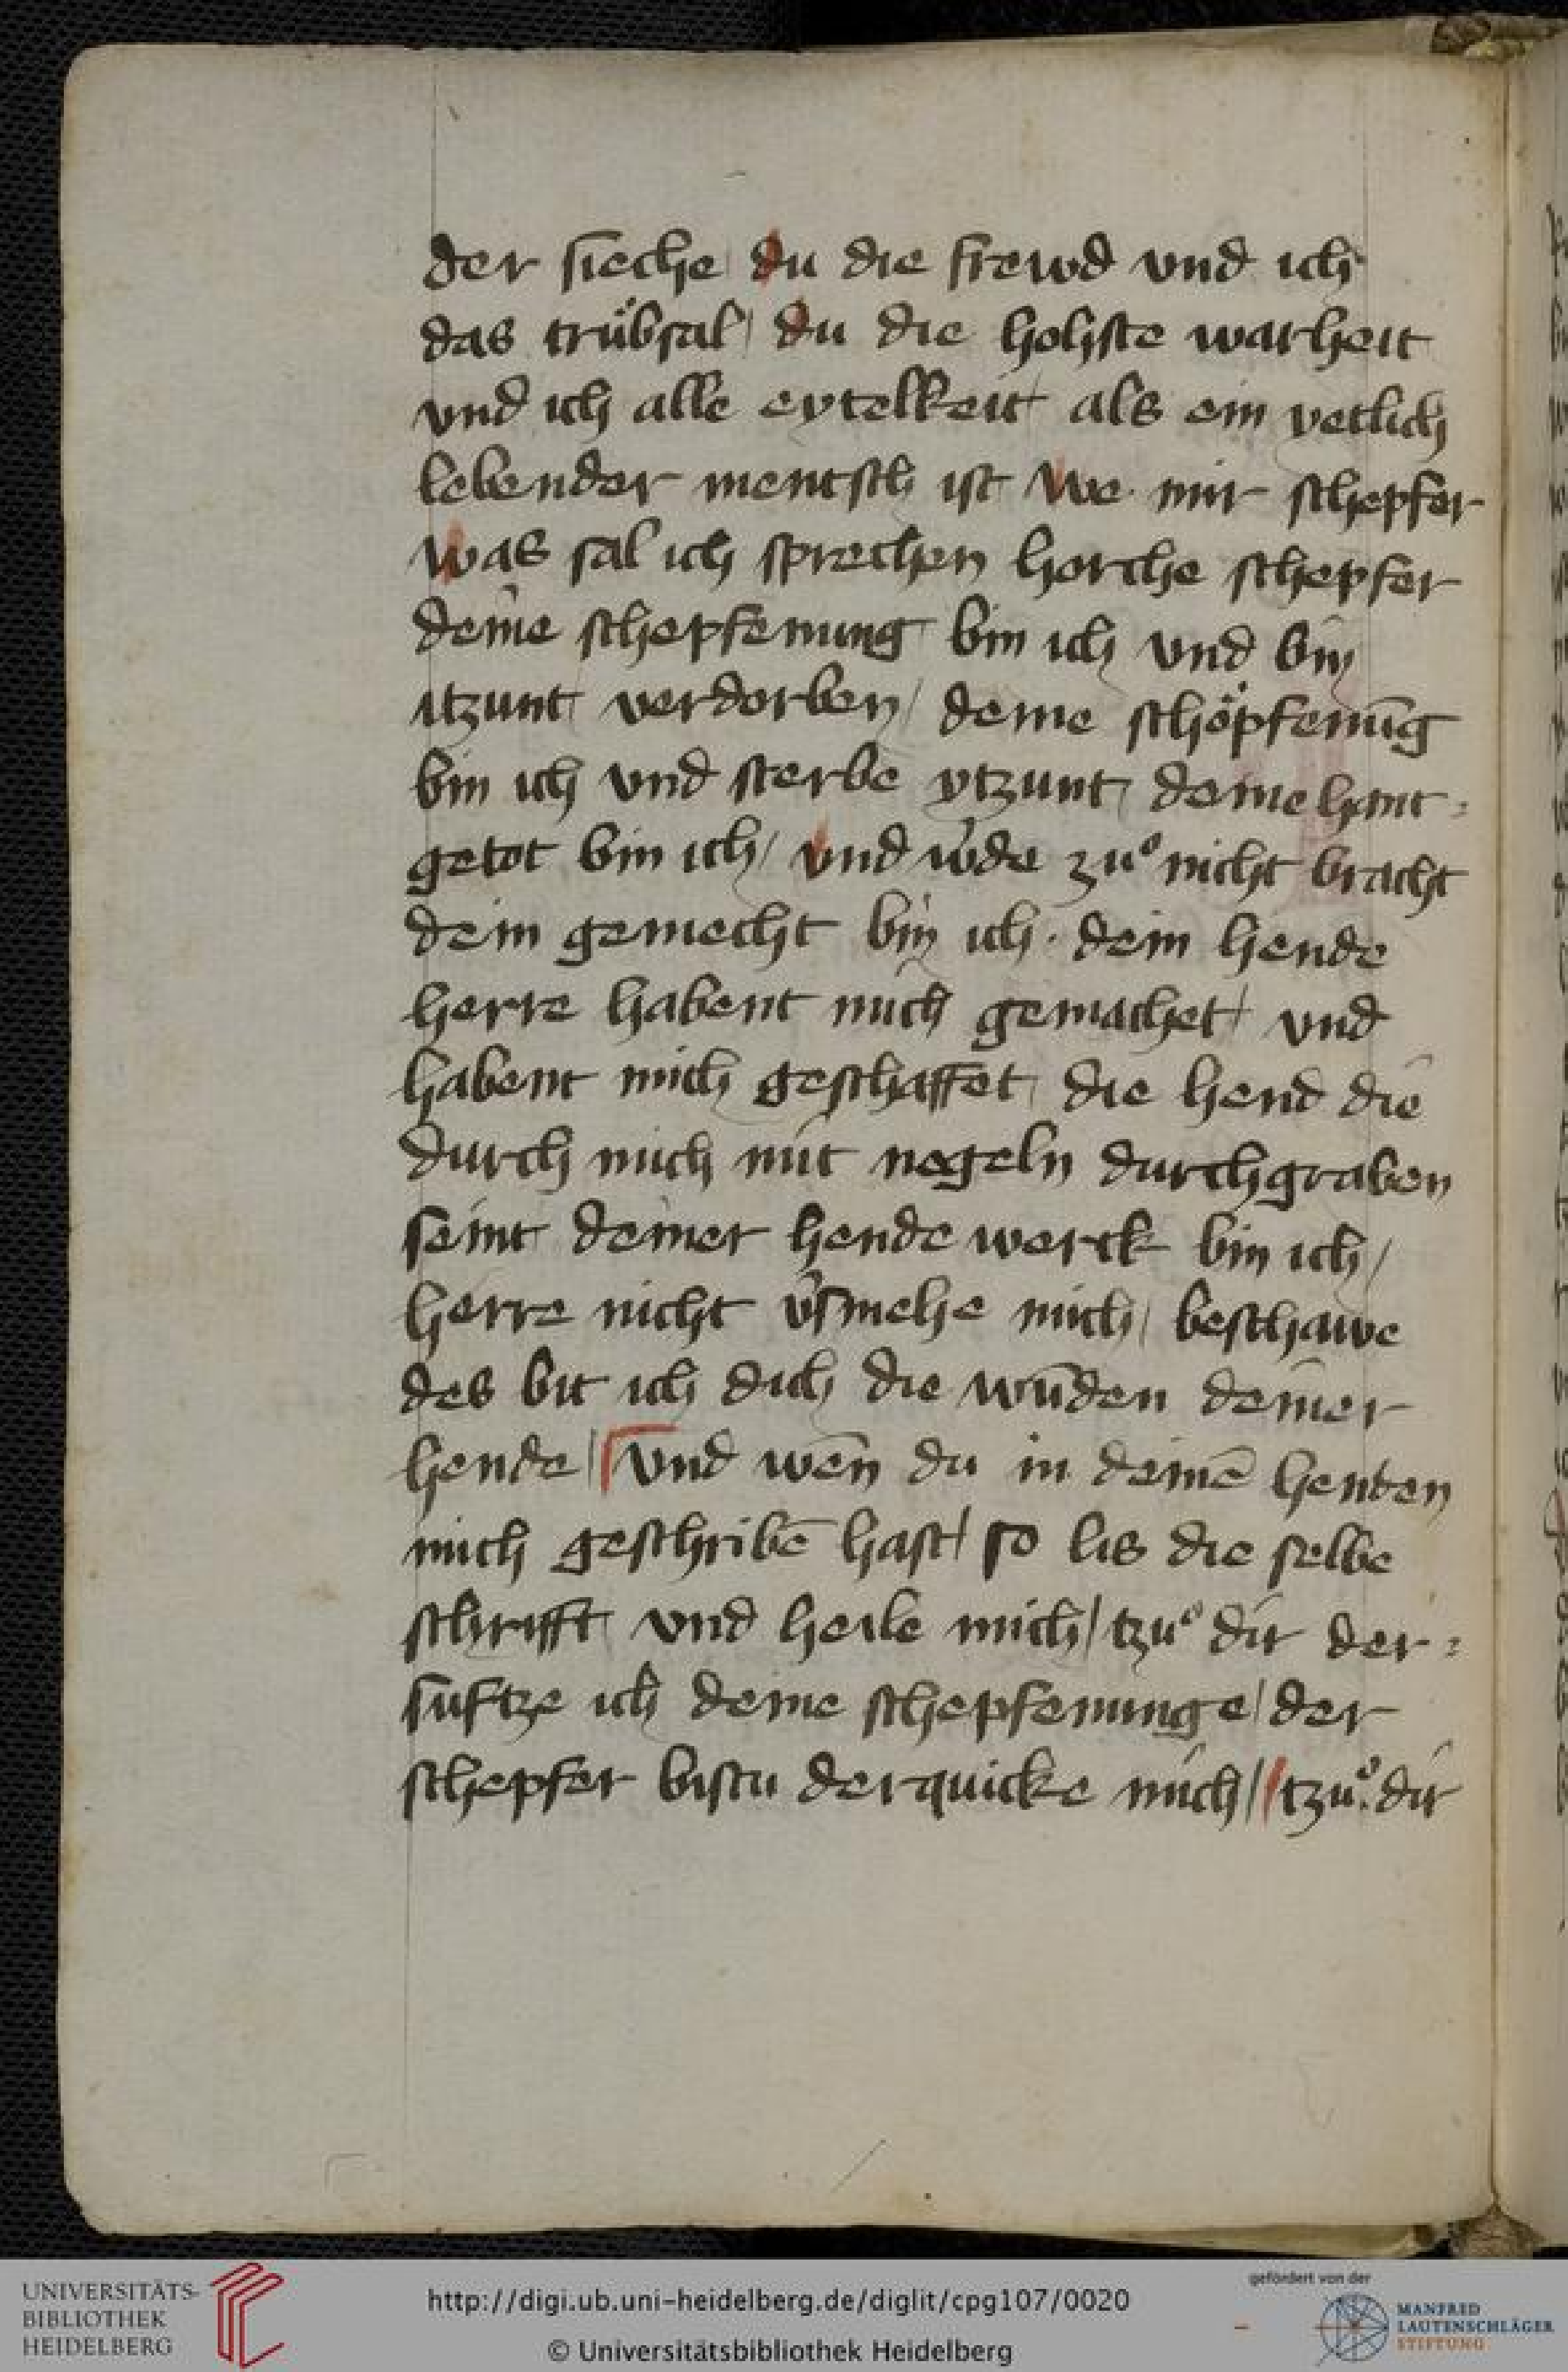 der sieche / du die frewd und ich
das trübsal / du die hohste warheit
vnd ich alle eytelkeit / als ein yetlich
lebender mentsch ist We mir schepfer
Was sal ich sprechen horche schepfer
deine schepfenung bin ich vnd bin
itzunt verdorben / deine schöpfenūg
bin ich vnd sterbe ytzunt / deine hant=
getot bin ich / vnd w'de zuͦ nicht bracht
dein gemecht bin ich · dein hende
herre habent mich gemachet / vnd
habent mich geschaffet / die hend die
durch mich mit negeln durchgraben
seint deiner hende werck bin ich /
herre nicht v'smehe mich / beschawe
des bit ich dich die wūden deiner
hende / vnd wen̄ du in deinē henden
mich geschribē hast / so lis die selbe
schrifft vnd heile mich / tzuͦ dir der=
sufftze ich deine schepfenunge / der
schepfer bistu derquicke mich // tzuͦ dir
UNIVERSITÄTS-
BIBLIOTHEK
HEIDELBERG
http://digi.ub.uni-heidelberg.de/diglit/cpg107/0020
© Universitätsbibliothek Heidelberg
gefördert von der
MANFRED
LAUTENSCHLÄGER
STIFTUNG